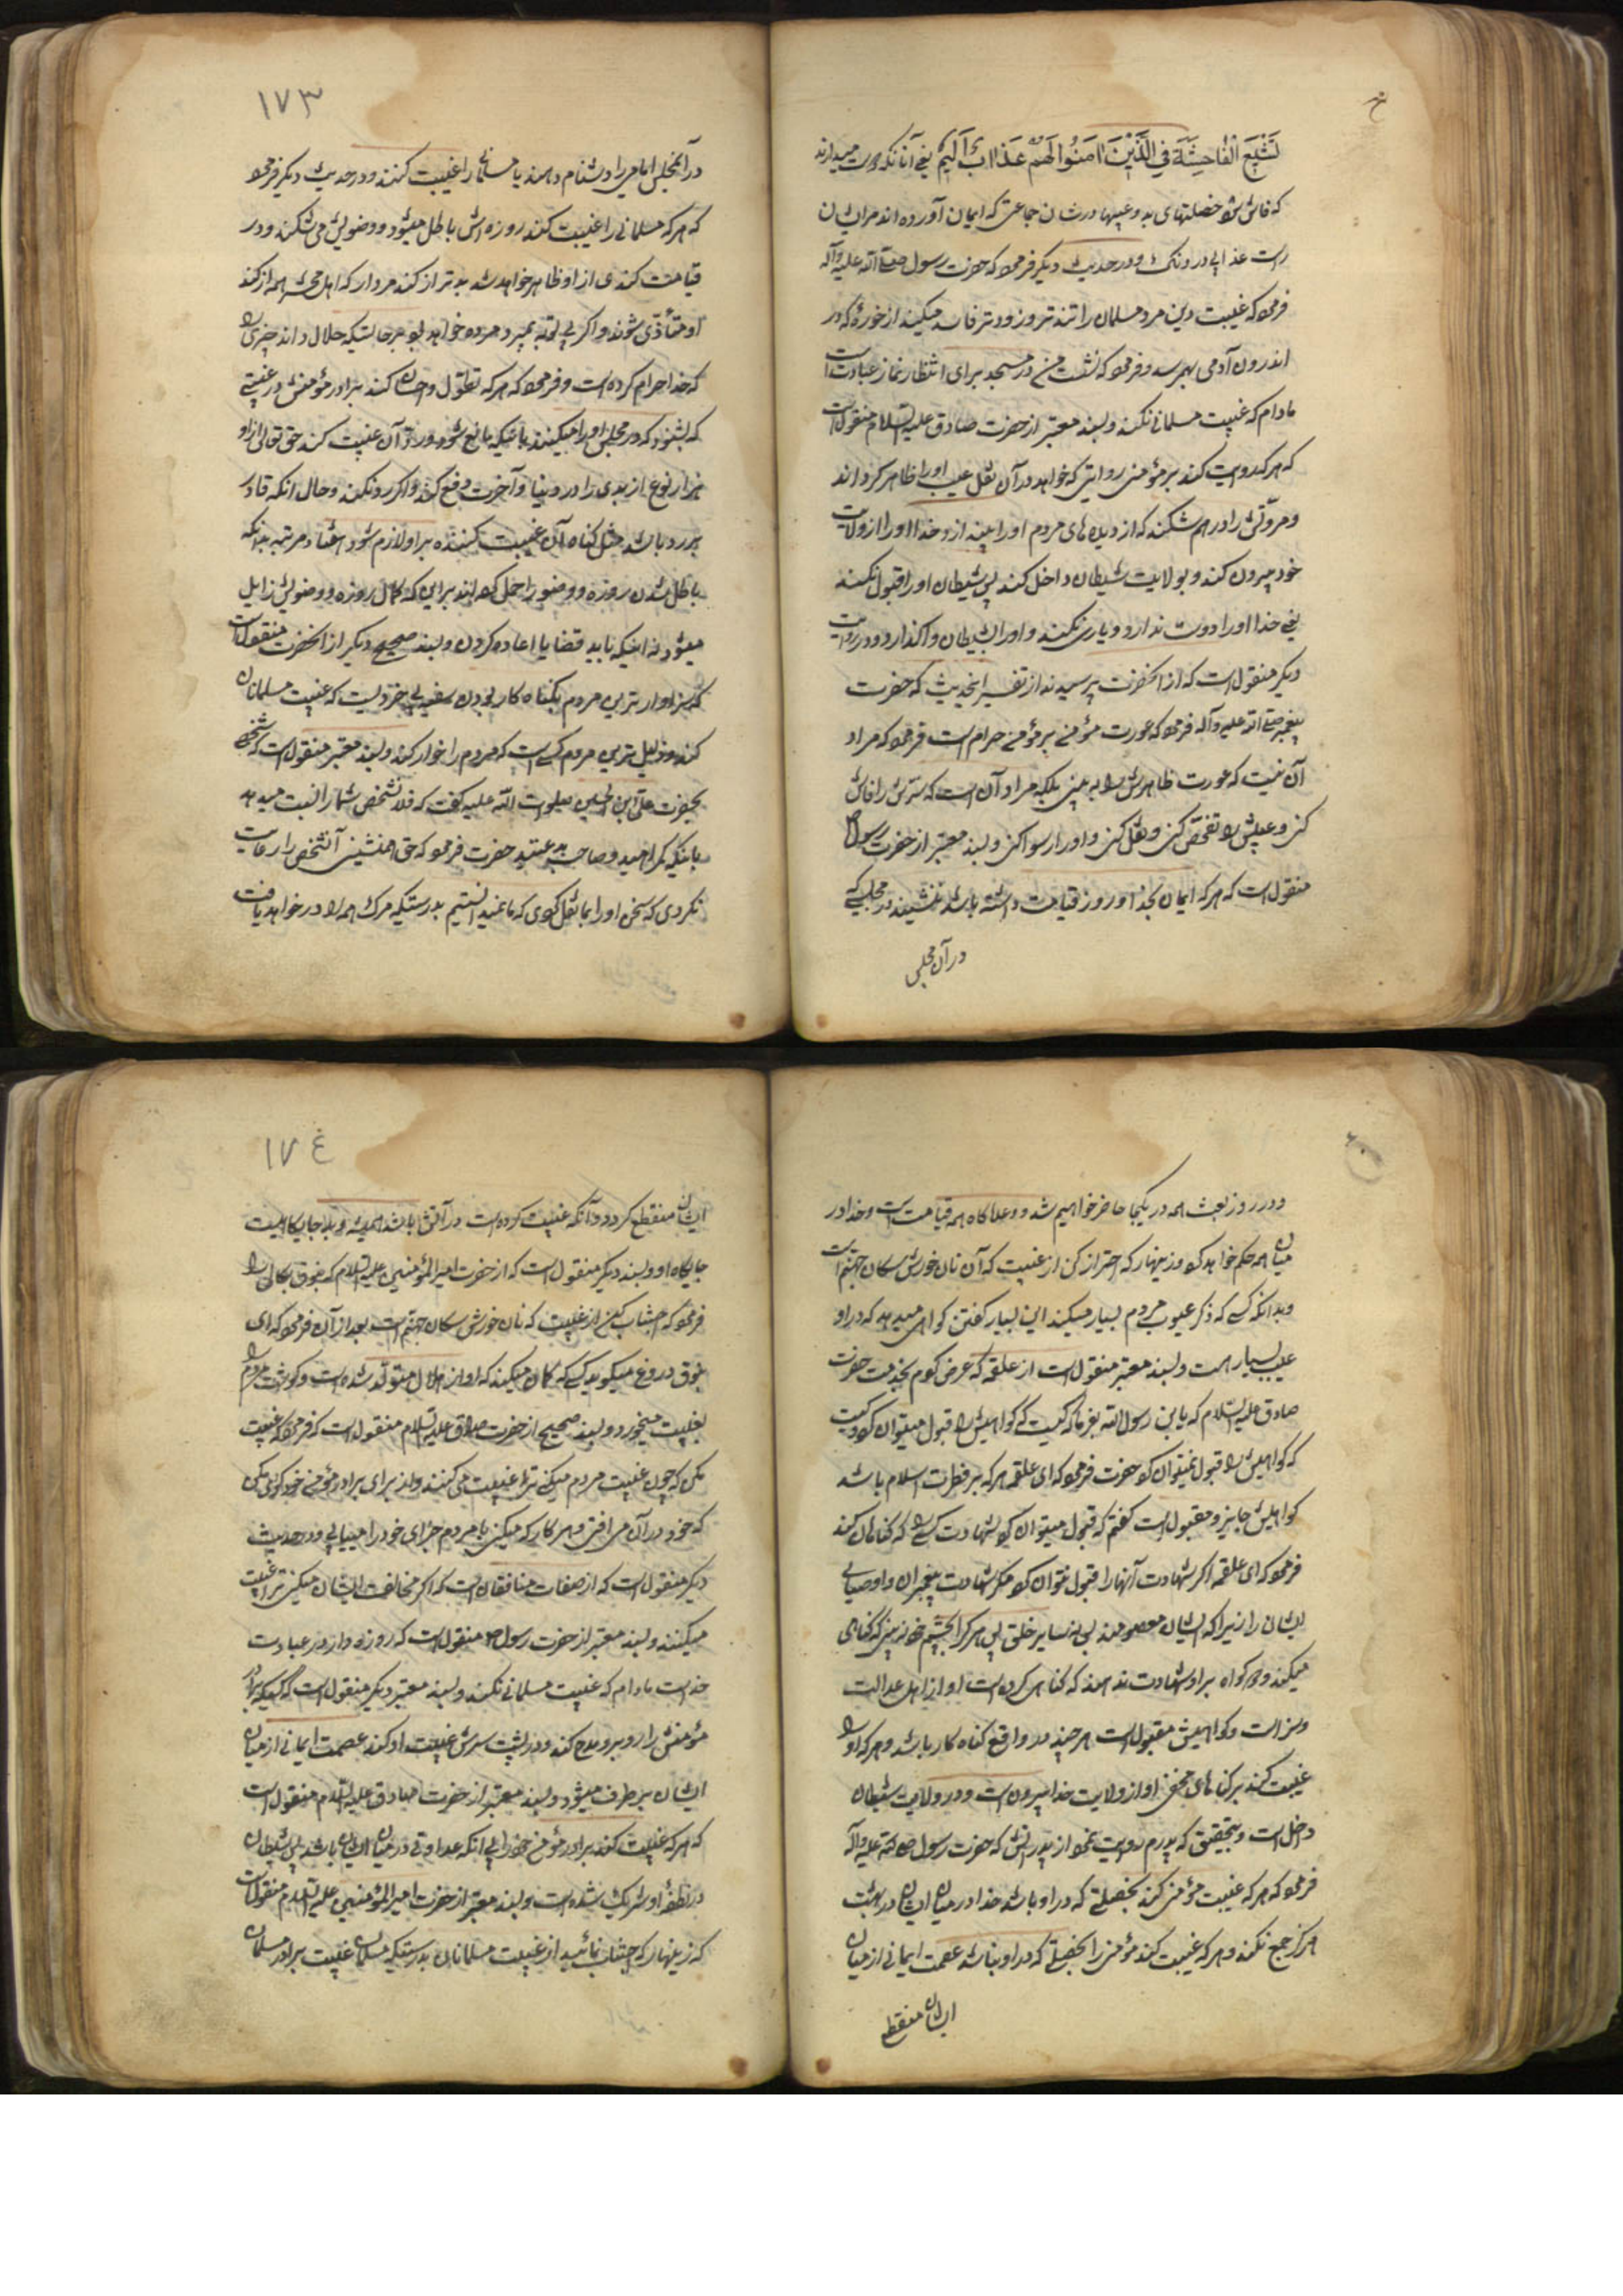 تَشْیَعَ الْفَاحِشَةَ فِي الَّذِیْنَ اٰمَنُوا لَهُمْ عَذَابٌ اَلِیْمٌ یعنی آنانکه دوست میدارند
که فاش شود خصلتهای بد و عیبها در شان جماعتی که ایمان آورده اند مر ایشان
راست عذابی دردناک و در حدیث دیگر فرمود که حضرت رسول صلی الله علیه وآله
فرمود که غیبت دین مرد مسلمان را تندتر و زودتر فاسد میکند از خوره که در
اندرون آدمی بهمرسد و فرمود که نشستن در مسجد برای انتظار نماز عبادت است
مادام که غیبت مسلمانی نکند و بسند معتبر از حضرت صادق علیه السلام منقول است
که هر که روایت کند بر مؤمنی روایتی که خواهد در آن نقل عیب او را ظاهر گرداند
و مروّتش را درهم شکند که از دیده های مردم او را بیندازد خدا او را از ولایت
خود بیرون کند و بولایت شیطان داخل کند پس شیطان او را قبول نکند
یعنی خدا او را دوست ندارد و یاری نکند و او را بشیطان واگذارد و در روایت
دیگر منقول است که از آنحضرت پرسیدند از تفسیر اینحدیث که حضرت
پیغمبر صلی الله علیه وآله فرمود که عورت مؤمن بر مؤمن حرام است فرمود که مراد
آن نیست که عورت ظاهرش را به بینی بلکه مراد آن است که سرّش را فاش
کنی و عیبش را تفحّص کنی و نقل کنی و او را رسوا کنی و بسند معتبر از حضرت رسول ص
منقول است که هر که ایمان بخدا و روز قیامت داشته باشد ننشیند در مجلسی که
در آن مجلس
۱۷۳
در آنمجلس امامی را دشنام دهند یا مسلمانی را غیبت کنند و در حدیث دیگر فرمود
که هر که مسلمانی را غیبت کند روزه اش باطل میشود و وضویش می شکند و در
قیامت گندی از او ظاهر خواهد شد بدتر از گند مردار که اهل محشر همه از گند
او متأذّی شوند و اگر بی توبه بمیرد مرده خواهد بود بر حالتیکه حلال داند چیزی را
که خدا حرام کرده است و فرمود که هر که تطوّل و احسان کند ببرادر مؤمنش در غیبتی
که بشنود که در مجلس او را میکنند باینکه مانع شود و رد آن غیبت کند حق تعالی از او
هزار نوع از بدی را در دنیا و آخرت دفع کند و اگر رد نکند و حال آنکه قادر
بر رد باشد مثل گناه آن غیبت کننده بر او لازم شود هفتاد مرتبه بدانکه
باطل شدن روزه و وضو را حمل کرده اند بر این که کمال روزه و وضویش زایل
میشود نه اینکه باید قضا یا اعاده کردن و بسند صحیح دیگر از آنحضرت منقول است
که سزاوارترین مردم بگناه کار بودن سفیه بی خردیست که غیبت مسلمانان
کند و ذلیل ترین مردم کسی است که مردم را خوار کند و بسند معتبر منقول است که شخصی
بحضرت علی ابن الحسین صلوات الله علیه گفت که فلانشخص شما را نسبت میدهد
باینکه گمراهید و صاحب بدعتید حضرت فرمود که حق همنشینی آنشخص را رعایت
نکردی که سخن او را بما نقل کردی که ما نمیدانستیم بدرستیکه مرگ همه را در خواهد یافت
و در روز بعث همه در یکجا حاضر خواهیم شد و وعدگاه همه قیامت است و خدا در
میان همه حکم خواهد کرد و زینهار که احتراز کن از غیبت که آن نان خورش سگان جهنم است
و بدانکه کسی که ذکر عیوب مردم بسیار میکند این بسیار گفتن گواهی میدهد که در او
عیب بسیار هست و بسند معتبر منقول است از علقمه که عرض کردم بخدمت حضرت
صادق علیه السلام که یا ابن رسول الله بفرما که کیست که گواهیش را قبول میتوان کرد و کیست
که گواهیش را قبول نمیتوان کرد حضرت فرمود که ای علقمه هر که بر فطرت اسلام باشد
گواهیش جایز و مقبول است گفتم که قبول میتوان کرد شهادت کسی را که گناهان کند
فرمود که ای علقمه اگر شهادت آنها را قبول نتوان کرد مگر شهادت پیغمبران و اوصیای
ایشان را زیرا که ایشان معصومند پس نه سایر خلق پس هر که را بچشم خود نه بینی که گناهی
میکند و دو گواه بر او شهادت ندهند که گناهی کرده است او از اهل عدالت
و ستر است و گواهیش مقبول است هر چند در واقع گناه کار باشد و هر که او را
غیبت کند بر گناهان مخفی او از ولایت خدا بیرون است و در ولایت شیطان
داخل است و بتحقیق که پدرم روایت نمود از پدرانش که حضرت رسول صلی الله علیه وآله
فرمود که هر که غیبت مؤمنی کند بخصلتی که در او باشد خدا در میان ایشان در بهشت
هرگز جمع نکند و هر که غیبت کند مؤمنی را بخصلتی که در او نباشد عصمت ایمانی از میان
ایشان منقطع
۱۷٤
ایشان منقطع گردد و آنکه غیبت کرده است در آتش باشد همیشه و بد جایگاهیست
جایگاه او و بسند دیگر منقول است که از حضرت امیر المؤمنین علیه السلام که بنوف بکالی را
فرمود که اجتناب کن از غیبت که نان خورش سگان جهنم است بعد از آن فرمود که ای
نوف دروغ میگوید کسی که گمان میکند که او از حلال متولد شده است و گوشت مردم را
بغیبت میخورد و بسند صحیح از حضرت صادق علیه السلام منقول است که فرمود که غیبت
مکن که چون غیبت مردم میکنی ترا غیبت می کنند و از برای برادر مؤمن خود گوی مکن
که خود در آن می افتی و هر کار که میکنی با مردم جزای خود را مییابی و در حدیث
دیگر منقول است که از صفات منافقان است که اگر مخالفت ایشان میکنی ترا غیبت
میکنند و بسند معتبر از حضرت رسول ص منقول است که روزه دار در عبادت
خداست مادام که غیبت مسلمانی نکند و بسند معتبر دیگر منقول است که کسیکه برادر
مؤمنش را روبرو مدح کند و در پشت سرش غیبت او کند عصمت ایمانی از میان
ایشان بر طرف میشود و بسند معتبر از حضرت صادق علیه السلام منقول است
که هر که غیبت کند برادر مؤمن خود را بی آنکه عداوتی در میان ایشان باشد پس شیطان
در نطفه او شریک شده است و بسند معتبر از حضرت امیر المؤمنین علیه السلام منقول است
که زینهار که اجتناب نمائید از غیبت مسلمانان بدرستیکه مسلمان غیبت برادر مسلمان